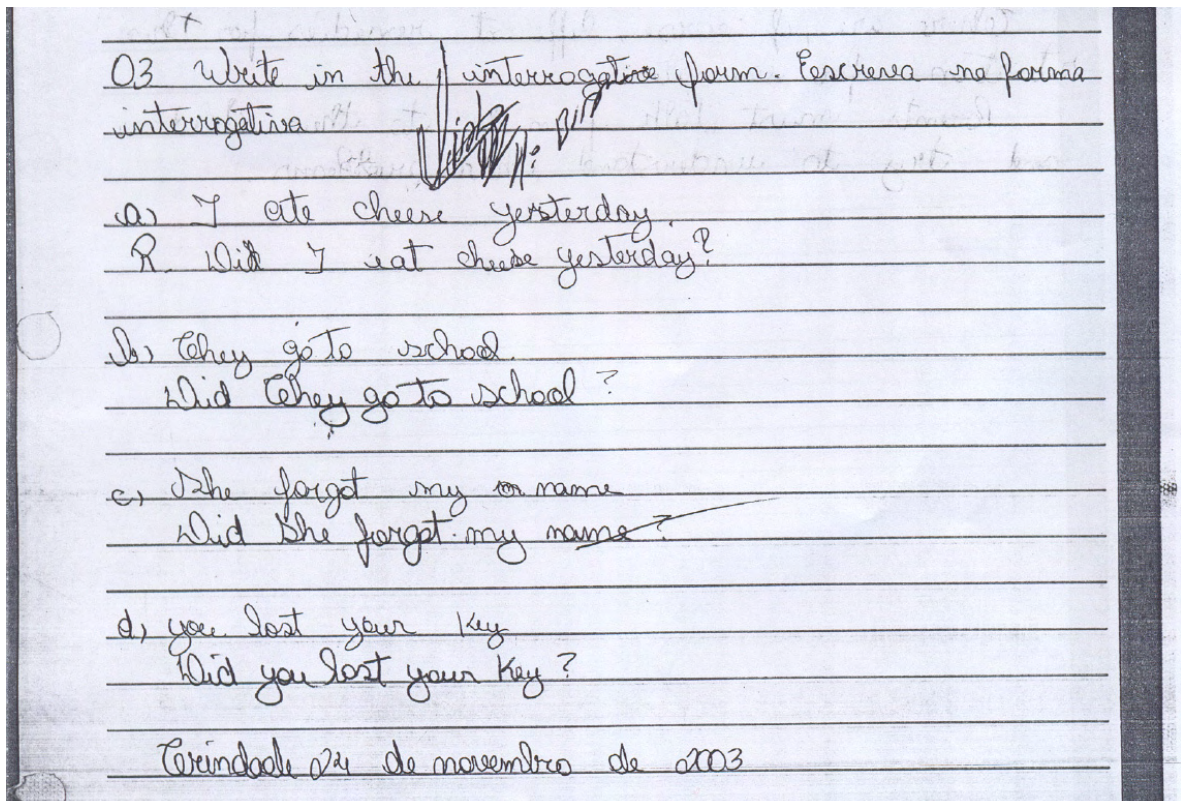 03 Write in the interrogative form. Escreva na forma
interrogativa
a) I ate cheese yesterday.
R. Did I eat cheese yesterday?
b) They go to school.
Did They go to school?
c) She forgot my name
Did She forgot my name?
d) you lost your Key
Did you lost your Key?
Trindade 24 de novembro de 2003